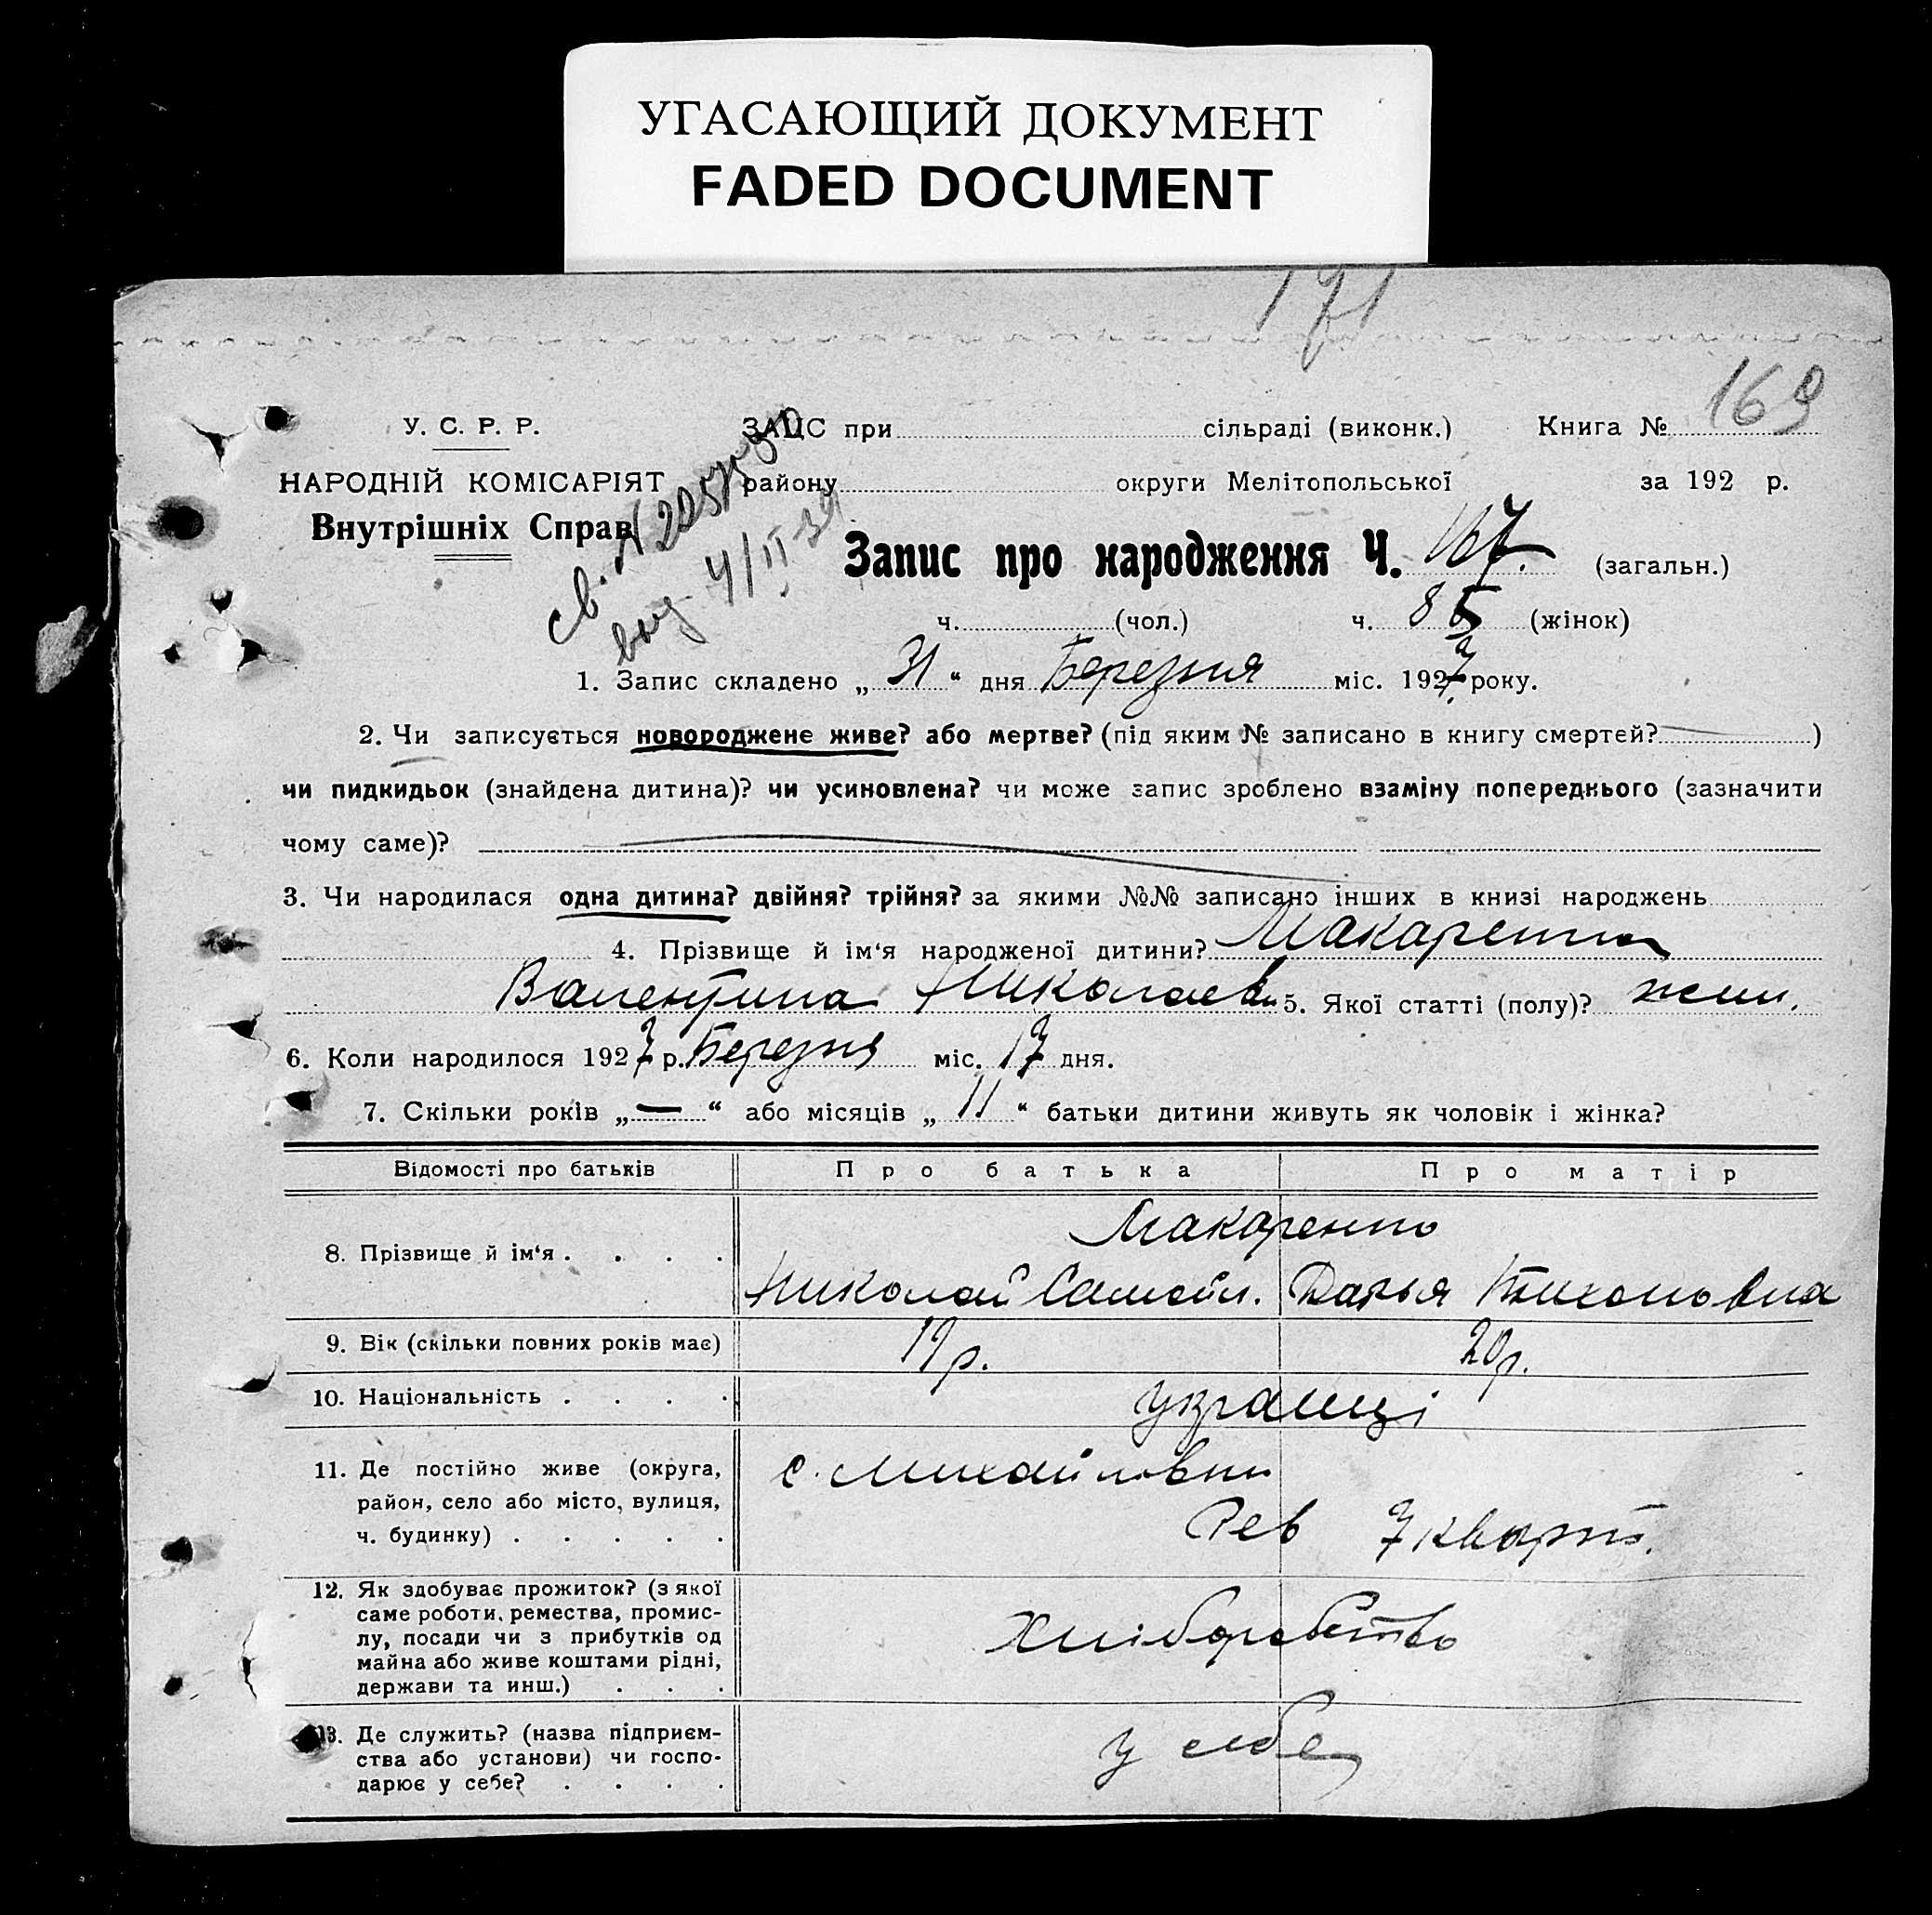 УГАСАЮЩИЙ ДОКУМЕНТ
FADED DOCUMENT
171
169
У. С. Р. Р.
НАРОДНІЙ КОМІСАРІЯТ
Внутрішніх Справ
ЗАЦС при сільраді (виконк.) Книга №
району округи Мелітопольської за 192 р.
св.
выд. 4/II 39
Запис про народження Ч. 167. (загальн.)
ч. (чол.) ч. 85 (жінок)
1. Запис складено „ 31 “ дня Березня міс. 1927 року.
2. Чи записується новороджене живе? або мертве? (під яким № записано в книгу смертей? )
чи пидкидьок (знайдена дитина)? чи усиновлена? чи може запис зроблено взаміну попереднього (зазначити
чому саме)?
3. Чи народилася одна дитина? двійня? трійня? за якими №№ записано інших в книзі народжень
4. Прізвище й ім‘я народженої дитини? Макаренко
Валентина Николаевн 5. Якої статті (полу)? жин.
6. Коли народилося 1927 р. Березня міс. 17 дня.
7. Скільки років „ — “ або місяців „ 11 “ батьки дитини живуть як чоловік і жінка?
Відомості про батьків Про батька Про матір
8. Прізвище й ім‘я . . . . Макаренко
Николай Самойл. Дарья Тихоновна
9. Вік (скільки повних років має) 19 р. 20 р.
10. Національність . . . . українці
11. Де постійно живе (округа,
район, село або місто, вулиця,
ч. будинку) . . . . .
с. Михайлівки
Рев 7 кварт.
12. Як здобуває прожиток? (з якої
саме роботи, ремества, промис-
лу, посади чи з прибутків од
майна або живе коштами рідні,
держави та инш.) . . .
Хліборобство
13. Де служить? (назва підприєм-
ства або установи) чи госпо-
дарює у себе? . . . .
у себе